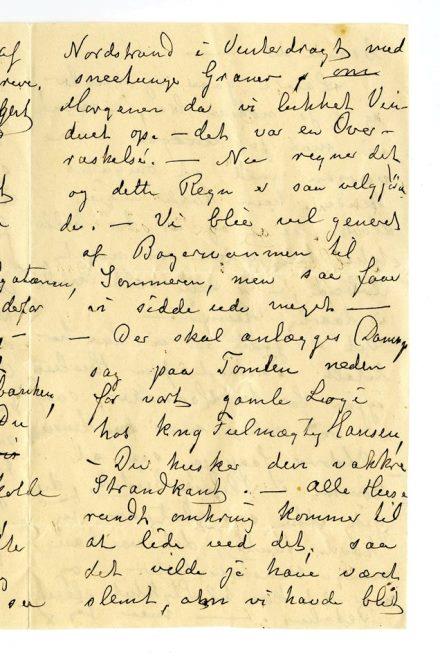 Nordstrand i Vinterdragt med
sneetunge Graner, om
Morgenen da vi lukket Vin-
duet op. — det var en Over-
raskelse. — Nu regner det
og dette Regn er saa velgjøren
de. — Vi blie vel generet
af Bagervarmen til
Sommeren, men saa faar
vi sidde ude meget —
— Der skal anlægges Damp
sag paa Tomten neden
for vort gamle Logi
hos Fuldmægtig Hansen,
— Du husker den vakkre
Strandkant. — Alle Huse
rundt omkring kommer til
at lide ved det, saa
det vilde jo have været
slemt, om vi havde blit